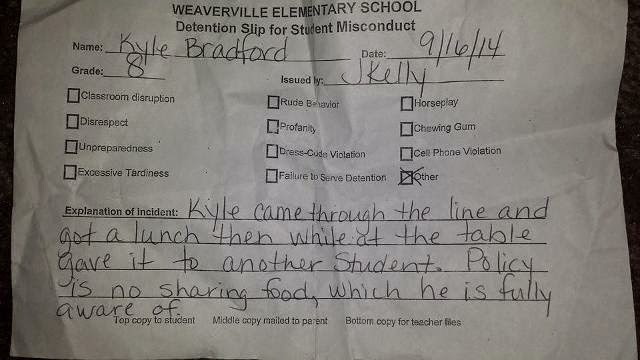 WEAVERVILLE ELEMENTARY SCHOOL
Detention Slip for Student Misconduct
Name: Kyle Bradford Date: 9/16/14
Grade: 8 Issued by: JKelly
Classroom disruption Rude Behavior Horseplay
Disrespect Profanity Chewing Gum
Unpreparedness Dress-Code Violation Cell Phone Violation
Excessive Tardiness Failure to Serve Detention Other
Explanation of incident: Kyle came through the line and
got a lunch then while at the table
gave it to another student. Policy
is no sharing food, which he is fully
aware of.
Top copy to student Middle copy mailed to parent Bottom copy for teacher files